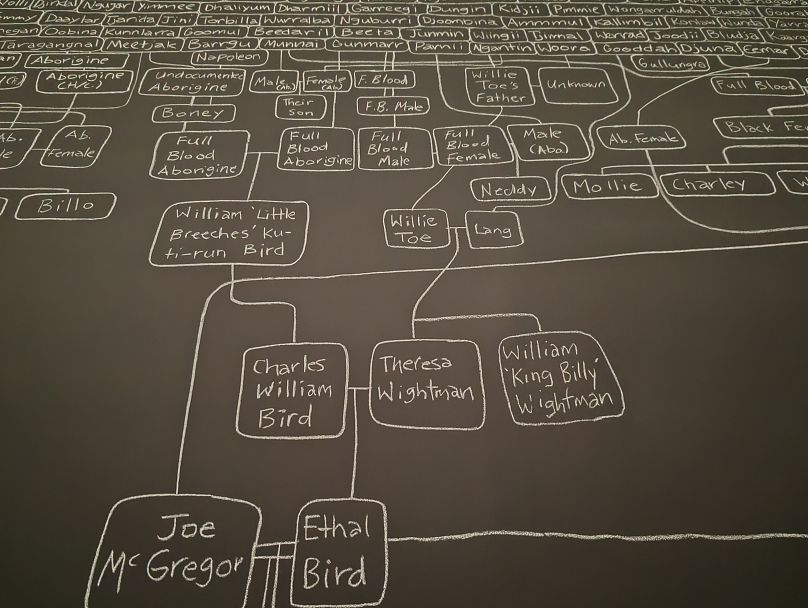 Bindal Naugar Yimmee Dhaliyum Dharmil Garreegi Bungin Kidjii Pimmie
Daaylar Garida Jini Torbilla Warralba Nguburri Djoombina Ammmul
Oobina Kunnlarra Goomul Beedaril Beeta Junmin Wiingii Tjinnal Wonrad Joodii Bludja
Taragangnal Meetjak Barrgu Munnai Gunmarr Pamii Ngantin Woora Gooddah Djuna
Aborigine
Napoleon
Gullungra
Aborigine
(H/c.)
Undocumented
Aborigine
Male
(Ab.)
Female
(Ab)
F. Blood
Willie
Toe's
Father
Unknown
Full Blood
Boney
Their
son
F.B. Male
Ab.
Female
Full
Blood
Aborigine
Full
Blood
Aborigine
Full
Blood
Male
Full
Blood
Female
Male
(Abo)
Ab. Female
Black
Billo
Neddy
Mollie
Charley
William 'Little
Breeches' Ku-
ti-run Bird
Willie
Toe
Lang
Charles
William
Bird
Theresa
Wightman
William
'King Billy'
Wightman
Joe
McGregor
Ethal
Bird